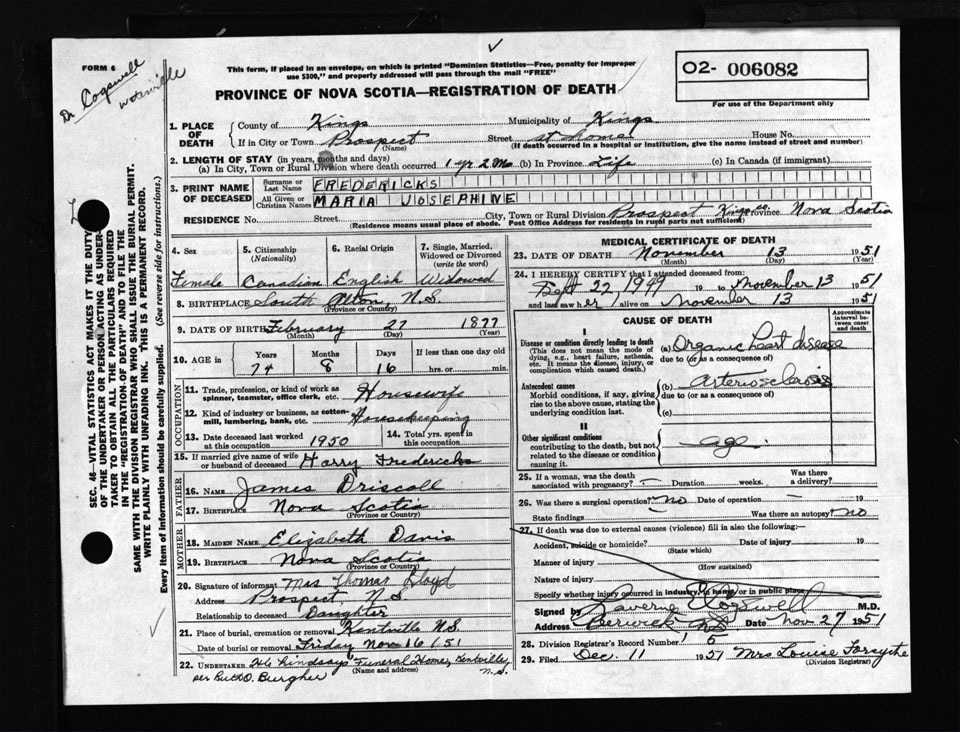 FORM 6
Dr Cogswell
This form, if placed in an envelope, on which is printed "Dominion Statistics—Free, penalty for improper
use $300," and properly addressed will pass through the mail "FREE"
PROVINCE OF NOVA SCOTIA—REGISTRATION OF DEATH
O2- 006082
For use of the Department only
1. PLACE OF DEATH
County of Kings Municipality of Kings
If in City or Town Prospect (Name) Street at home House No.
(If death occurred in a hospital or institution, give the name instead of street and number)
2. LENGTH OF STAY (in years, months and days)
(a) In City, Town or Rural Division where death occurred 1 yr 2 Mo (b) In Province Life (c) In Canada (if immigrant)
3. PRINT NAME OF DECEASED
Surname or Last Name FREDERICKS
All Given or Christian Names MARIA JOSEPHINE
RESIDENCE No. Street City, Town or Rural Division Prospect Kings co. Province Nova Scotia
(Residence means usual place of abode. Post Office Address for Residents in rural parts not sufficient)
4. Sex 5. Citizenship (Nationality) 6. Racial Origin 7. Single, Married, Widowed or Divorced (write the word)
Female Canadian English Widowed
8. BIRTHPLACE South Alton, N.S.
(Province or Country)
9. DATE OF BIRTH February 27 1877
(Month) (Day) (Year)
10. AGE in Years Months Days If less than one day old
74 8 16 hrs. or min.
OCCUPATION
11. Trade, profession, or kind of work as spinner, teamster, office clerk, etc. Housewife
12. Kind of industry or business, as cotton-mill, lumbering, bank, etc. Housekeeping
13. Date deceased last worked at this occupation 1950 14. Total yrs. spent in this occupation
15. If married give name of wife or husband of deceased Harry Fredericks
FATHER
16. NAME James Driscoll
17. BIRTHPLACE Nova Scotia
(Province or Country)
MOTHER
18. MAIDEN NAME Elizabeth Davis
19. BIRTHPLACE Nova Scotia
(Province or Country)
20. Signature of informant Mrs Thomas Lloyd
Address Prospect N S
Relationship to deceased Daughter
21. Place of burial, cremation or removal Kentville N.S.
Date of burial or removal Friday Nov 16 / 51
22. UNDERTAKER Lindsays' Funeral Home, Kentville N.S.
(Name and address)
MEDICAL CERTIFICATE OF DEATH
23. DATE OF DEATH November 13 1951
(Month) (Day) (Year)
24. I HEREBY CERTIFY that I attended deceased from:
Sept 22, 1949 19 to November 13 1951
and last saw her alive on November 13 1951
CAUSE OF DEATH
Approximate interval between onset and death
I
Disease or condition directly leading to death
(This does not mean the mode of dying, e.g., heart failure, asthenia, etc. It means the disease, injury, or complication which caused death.)
(a) Organic heart disease
due to (or as a consequence of)
Antecedent causes
Morbid conditions, if any, giving rise to the above cause, stating the underlying condition last.
(b) Arteriosclerosis
due to (or as a consequence of)
(c)
II
Other significant conditions
contributing to the death, but not related to the disease or condition causing it.
age
25. If a woman, was the death associated with pregnancy? — Duration weeks. Was there a delivery?
26. Was there a surgical operation? no Date of operation — 19
State findings Was there an autopsy? no
27. If death was due to external causes (violence) fill in also the following:—
Accident, suicide or homicide? Date of injury 19
(State which)
Manner of injury
(How sustained)
Nature of injury
Specify whether injury occurred in industry, in home or in public place
Signed by Laverne Cogswell M.D.
Address Berwick NS Date Nov 27 1951
28. Division Registrar's Record Number 15
29. Filed Dec. 11 1951 Mrs Louise Forsythe
(Division Registrar)
SEC. 46—VITAL STATISTICS ACT MAKES IT THE DUTY
OF THE UNDERTAKER OR PERSON ACTING AS UNDER-
TAKER TO OBTAIN ALL THE PARTICULARS REQUIRED
IN THE "REGISTRATION OF DEATH" AND TO FILE THE
SAME WITH THE DIVISION REGISTRAR WHO SHALL ISSUE THE BURIAL PERMIT.
WRITE PLAINLY WITH UNFADING INK. THIS IS A PERMANENT RECORD.
Every item of information should be carefully supplied. (See reverse side for instructions.)